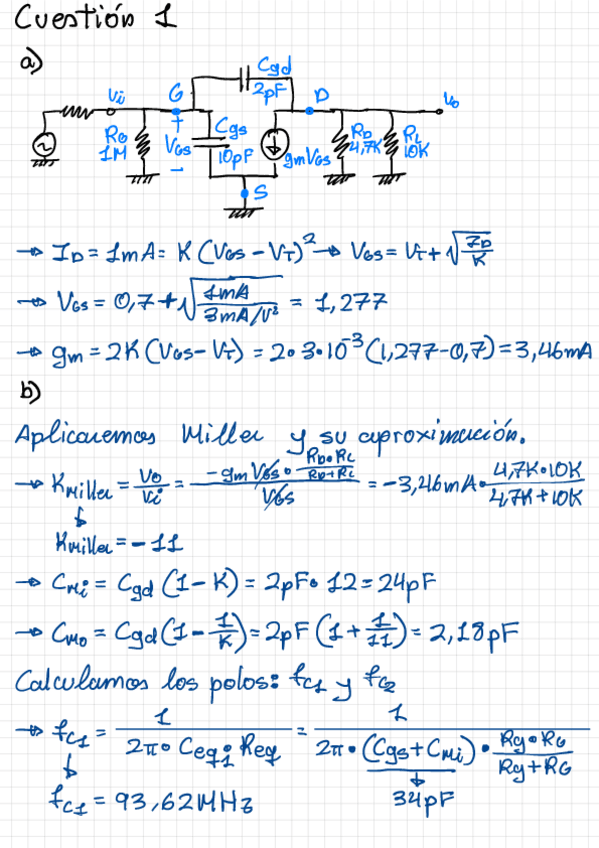 Cuestión 1
a)
Cgd
2pF
vi G D vo
RG 1M
+ VGS -
Cgs 10pF
gmVGS
RD 4,7K
RL 10K
S
→ ID = 1mA = K (VGS - VT)² → VGS = VT + √(ID/K)
→ VGS = 0,7 + √(1mA / 3mA/V²) = 1,277
→ gm = 2K (VGS - VT) = 2·3·10⁻³ (1,277-0,7) = 3,46mA
b)
Aplicaremos Miller y su aproximación.
→ Kmiller = vo/vi = (-gm VGS · (RD·RL)/(RD+RL)) / VGS = -3,46mA · (4,7K·10K)/(4,7K+10K)
Kmiller = -11
→ CMi = Cgd (1 - K) = 2pF · 12 = 24pF
→ CMo = Cgd (1 - 1/K) = 2pF (1 + 1/11) = 2,18pF
Calculamos los polos: fc1 y fc2
→ fc1 = 1 / (2π · Ceq1 · Req) = 1 / (2π · (Cgs + CMi) · (Rg·RG)/(Rg+RG))
fc1 = 93,62MHz 34pF